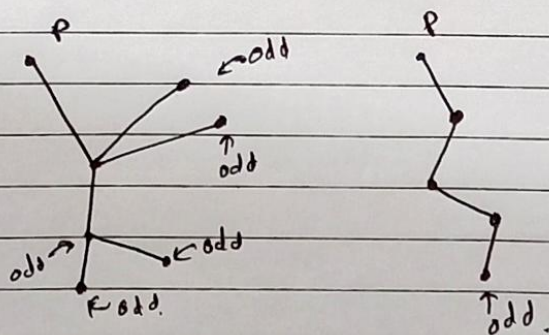 P
odd
odd
odd
odd
odd.
P
odd